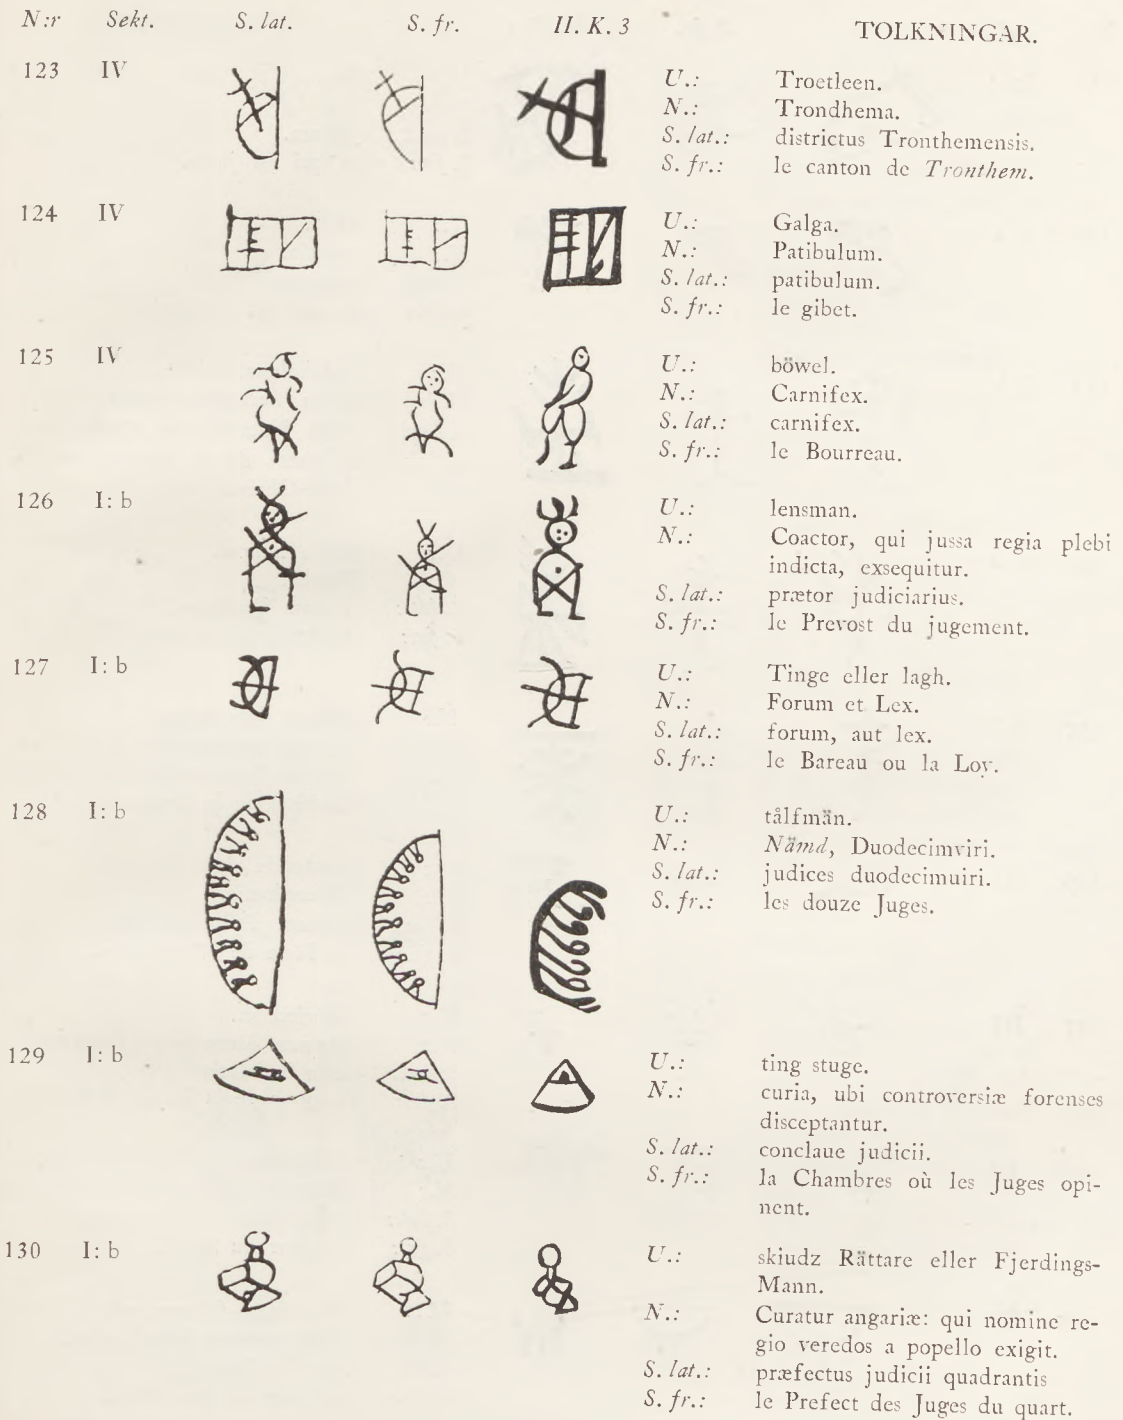 N:r Sekt. S. lat. S. fr. II. K. 3 TOLKNINGAR.
123 IV U.: Troetleen.
N.: Trondhema.
S. lat.: districtus Tronthemensis.
S. fr.: le canton de Tronthem.
124 IV U.: Galga.
N.: Patibulum.
S. lat.: patibulum.
S. fr.: le gibet.
125 IV U.: böwel.
N.: Carnifex.
S. lat.: carnifex.
S. fr.: le Bourreau.
126 I: b U.: lensman.
N.: Coactor, qui jussa regia plebi
indicta, exsequitur.
S. lat.: prætor judiciarius.
S. fr.: le Prevost du jugement.
127 I: b U.: Tinge eller lagh.
N.: Forum et Lex.
S. lat.: forum, aut lex.
S. fr.: le Bareau ou la Loy.
128 I: b U.: tålfmän.
N.: Nämd, Duodecimviri.
S. lat.: judices duodecimuiri.
S. fr.: les douze Juges.
129 I: b U.: ting stuge.
N.: curia, ubi controversiæ forenses
disceptantur.
S. lat.: conclaue judicii.
S. fr.: la Chambres où les Juges opi-
nent.
130 I: b U.: skiudz Rättare eller Fjerdings-
Mann.
N.: Curatur angariæ: qui nomine re-
gio veredos a popello exigit.
S. lat.: præfectus judicii quadrantis
S. fr.: le Prefect des Juges du quart.